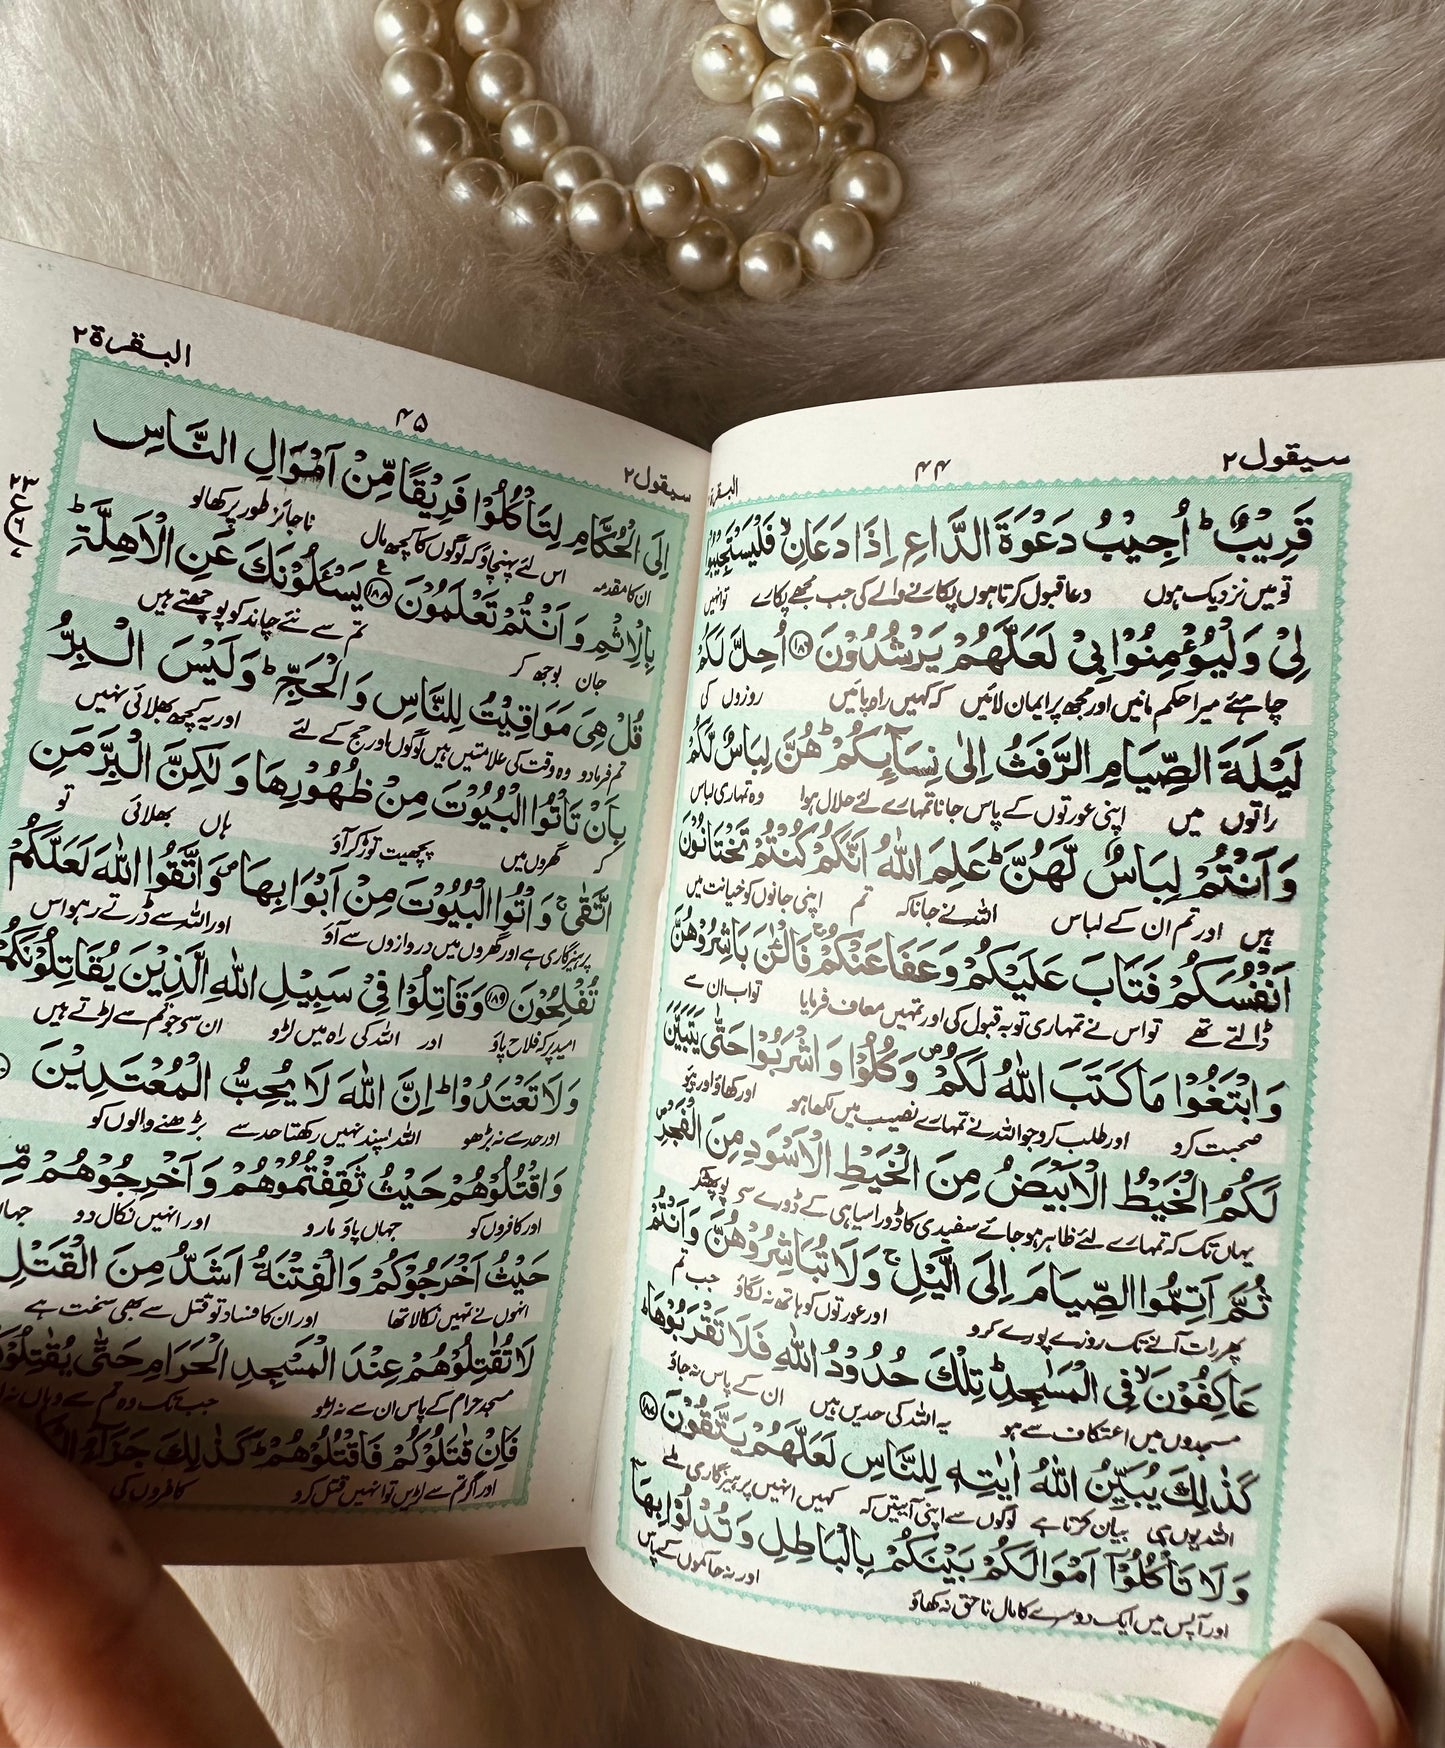 سیقول ۲
۴۴
البقرة ۲
قَرِيْبٌ ؕ اُجِيْبُ دَعْوَةَ الدَّاعِ اِذَا دَعَانِ ۙ فَلْيَسْتَجِيْبُوْا
تو میں نزدیک ہوں دعا قبول کرتا ہوں پکارنے والے کی جب مجھے پکارے تو انہیں
لِيْ وَلْيُؤْمِنُوْا بِيْ لَعَلَّهُمْ يَرْشُدُوْنَ ۝۱۸۶ اُحِلَّ لَكُمْ
چاہئے میرا حکم مانیں اور مجھ پر ایمان لائیں کہ کہیں راہ پائیں روزوں کی
لَيْلَةَ الصِّيَامِ الرَّفَثُ اِلٰى نِسَآئِكُمْ ؕ هُنَّ لِبَاسٌ لَّكُمْ
راتوں میں اپنی عورتوں کے پاس جانا تمہارے لئے حلال ہوا وہ تمہاری لباس
وَاَنْتُمْ لِبَاسٌ لَّهُنَّ ؕ عَلِمَ اللّٰهُ اَنَّكُمْ كُنْتُمْ تَخْتَانُوْنَ
ہیں اور تم ان کے لباس اللہ نے جانا کہ تم اپنی جانوں کو خیانت میں
اَنْفُسَكُمْ فَتَابَ عَلَيْكُمْ وَعَفَا عَنْكُمْ ۚ فَالْـٰٔنَ بَاشِرُوْهُنَّ
ڈالتے تھے تو اس نے تمہاری توبہ قبول کی اور تمہیں معاف فرمایا تو اب ان سے
وَابْتَغُوْا مَا كَتَبَ اللّٰهُ لَكُمْ ۪ وَكُلُوْا وَاشْرَبُوْا حَتّٰى يَتَبَيَّنَ
صحبت کرو اور طلب کرو جو اللہ نے تمہارے نصیب میں لکھا ہو اور کھاؤ اور پیو
لَكُمُ الْخَيْطُ الْاَبْيَضُ مِنَ الْخَيْطِ الْاَسْوَدِ مِنَ الْفَجْرِ ۪
یہاں تک کہ تمہارے لئے ظاہر ہو جائے سفیدی کا ڈورا سیاہی کے ڈورے سے پو پھٹ کر
ثُمَّ اَتِمُّوا الصِّيَامَ اِلَى الَّيْلِ ۚ وَلَا تُبَاشِرُوْهُنَّ وَاَنْتُمْ
پھر رات آنے تک روزے پورے کرو اور عورتوں کو ہاتھ نہ لگاؤ جب تم
عَاكِفُوْنَ ۙ فِي الْمَسٰجِدِ ؕ تِلْكَ حُدُوْدُ اللّٰهِ فَلَا تَقْرَبُوْهَا ؕ
مسجدوں میں اعتکاف سے ہو یہ اللہ کی حدیں ہیں ان کے پاس نہ جاؤ
كَذٰلِكَ يُبَيِّنُ اللّٰهُ اٰيٰتِهٖ لِلنَّاسِ لَعَلَّهُمْ يَتَّقُوْنَ ۝۱۸۷
اللہ یوں ہی بیان کرتا ہے لوگوں سے اپنی آیتیں کہ کہیں انہیں پرہیزگاری ملے
وَلَا تَاْكُلُوْٓا اَمْوَالَكُمْ بَيْنَكُمْ بِالْبَاطِلِ وَتُدْلُوْا بِهَآ
اور آپس میں ایک دوسرے کا مال ناحق نہ کھاؤ اور نہ حاکموں کے پاس
سیقول ۲
۴۵
البقرة ۲
اِلَى الْحُكَّامِ لِتَاْكُلُوْا فَرِيْقًا مِّنْ اَمْوَالِ النَّاسِ
ان کا مقدمہ اس لئے پہنچاؤ کہ لوگوں کا کچھ مال ناجائز طور پر کھا لو
بِالْاِثْمِ وَاَنْتُمْ تَعْلَمُوْنَ ۝۱۸۸ يَسْـَٔلُوْنَكَ عَنِ الْاَهِلَّةِ ؕ
جان بوجھ کر تم سے نئے چاند کو پوچھتے ہیں
قُلْ هِيَ مَوَاقِيْتُ لِلنَّاسِ وَالْحَجِّ ؕ وَلَيْسَ الْبِرُّ
تم فرما دو وہ وقت کی علامتیں ہیں لوگوں اور حج کے لئے اور یہ کچھ بھلائی نہیں
بِاَنْ تَاْتُوا الْبُيُوْتَ مِنْ ظُهُوْرِهَا وَلٰكِنَّ الْبِرَّ مَنِ
کہ گھروں میں پچھیت توڑ کر آؤ ہاں بھلائی تو
اتَّقٰى ۚ وَاْتُوا الْبُيُوْتَ مِنْ اَبْوَابِهَا ۪ وَاتَّقُوا اللّٰهَ لَعَلَّكُمْ
پرہیزگاری ہے اور گھروں میں دروازوں سے آؤ اور اللہ سے ڈرتے رہو اس
تُفْلِحُوْنَ ۝۱۸۹ وَقَاتِلُوْا فِيْ سَبِيْلِ اللّٰهِ الَّذِيْنَ يُقَاتِلُوْنَكُمْ
امید پر کہ فلاح پاؤ اور اللہ کی راہ میں لڑو ان سے جو تم سے لڑتے ہیں
وَلَا تَعْتَدُوْا ؕ اِنَّ اللّٰهَ لَا يُحِبُّ الْمُعْتَدِيْنَ
اور حد سے نہ بڑھو اللہ پسند نہیں رکھتا حد سے بڑھنے والوں کو
وَاقْتُلُوْهُمْ حَيْثُ ثَقِفْتُمُوْهُمْ وَاَخْرِجُوْهُمْ مِّنْ
اور کافروں کو جہاں پاؤ مارو اور انہیں نکال دو جہاں
حَيْثُ اَخْرَجُوْكُمْ وَالْفِتْنَةُ اَشَدُّ مِنَ الْقَتْلِ
انہوں نے تمہیں نکالا تھا اور ان کا فساد تو قتل سے بھی سخت ہے
لَا تُقٰتِلُوْهُمْ عِنْدَ الْمَسْجِدِ الْحَرَامِ حَتّٰى يُقٰتِلُوْ
مسجد حرام کے پاس ان سے نہ لڑو جب تک وہ تم سے وہاں نہ
فَاِنْ قٰتَلُوْكُمْ فَاقْتُلُوْهُمْ ؕ كَذٰلِكَ جَزَآءُ
اور اگر تم سے لڑیں تو انہیں قتل کرو کافروں کی